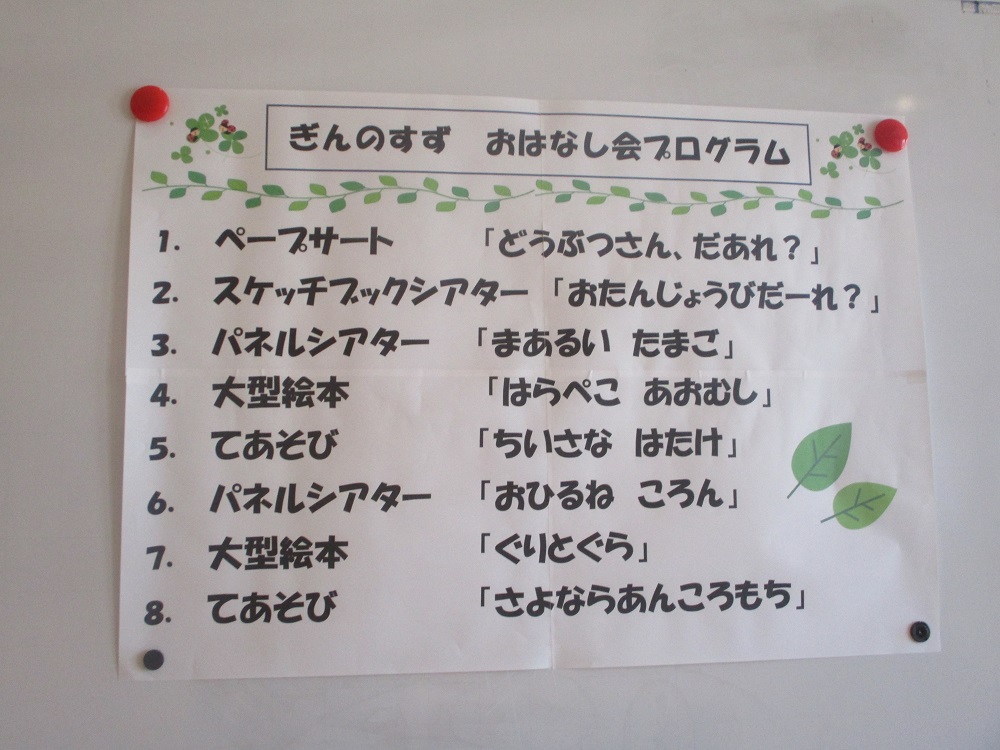 ぎんのすず　おはなし会プログラム
1. ペープサート　「どうぶつさん、だあれ？」
2. スケッチブックシアター　「おたんじょうびだーれ？」
3. パネルシアター　「まあるい　たまご」
4. 大型絵本　「はらぺこ　あおむし」
5. てあそび　「ちいさな　はたけ」
6. パネルシアター　「おひるね　ころん」
7. 大型絵本　「ぐりとぐら」
8. てあそび　「さよならあんころもち」